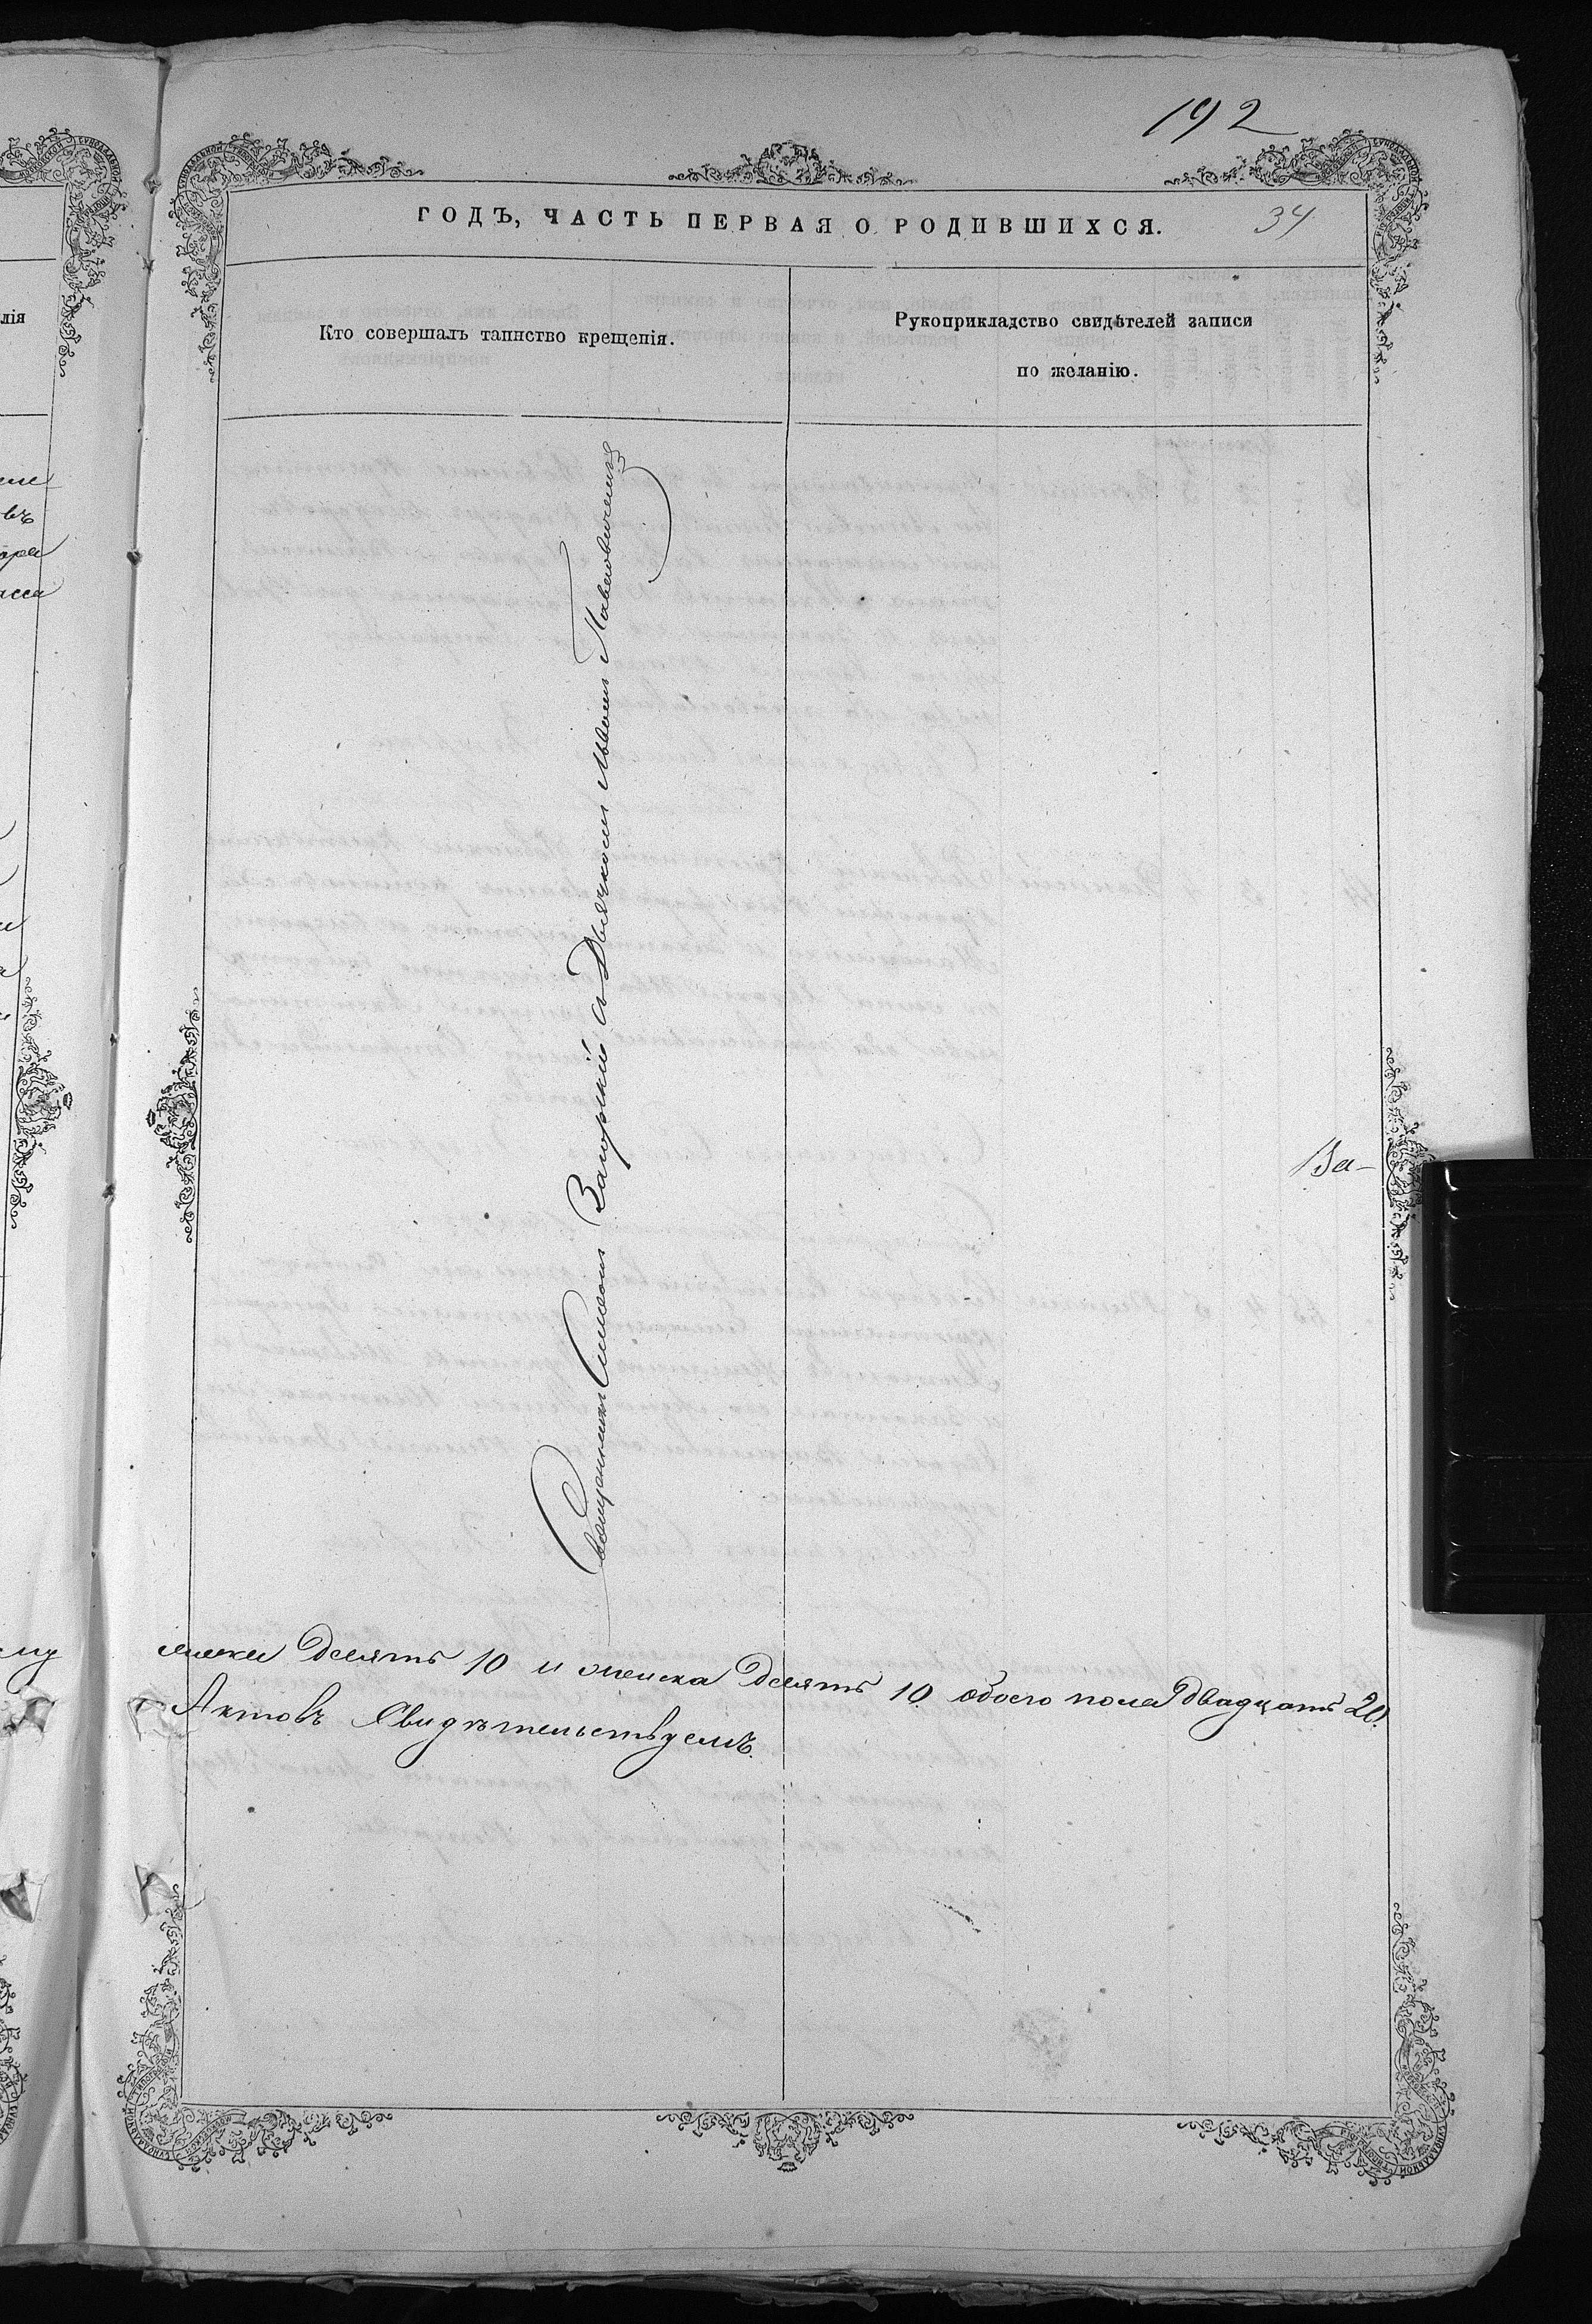 192
ГОДЪ, ЧАСТЬ ПЕРВАЯ О РОДИВШИХСЯ.
34
Кто совершалъ таинство крещенія.
Рукоприкладство свидѣтелей записи
по желанію.
Священникъ Симеонъ Загорскій съ Дьячкомъ Иваномъ Павловичемъ
За-
мужска Десять 10 и женска Десять 10 обоего пола Двадцать 20.
Актовъ Свидѣтельствуемъ.